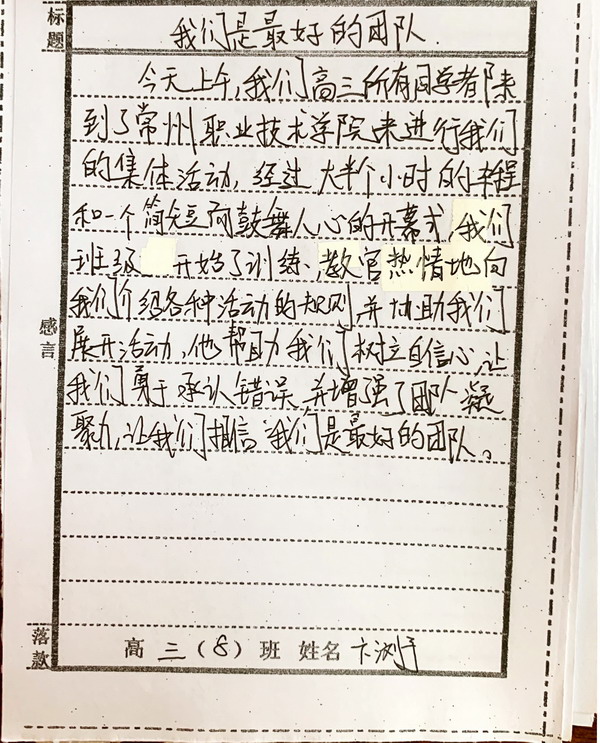 标题
我们是最好的团队
今天上午,我们高三所有同学都来
到了常州职业技术学院来进行我们
的集体活动,经过大半个小时的车程
和一个简短而鼓舞人心的开幕式,我们
班级开始了训练、教官热情地向
我们介绍各种活动的规则并协助我们
展开活动,他帮助我们树立自信心,让
我们勇于承认错误,并增强了团队凝
聚力,让我们相信“我们是最好的团队。
感言
落款
高三(8)班 姓名 卞